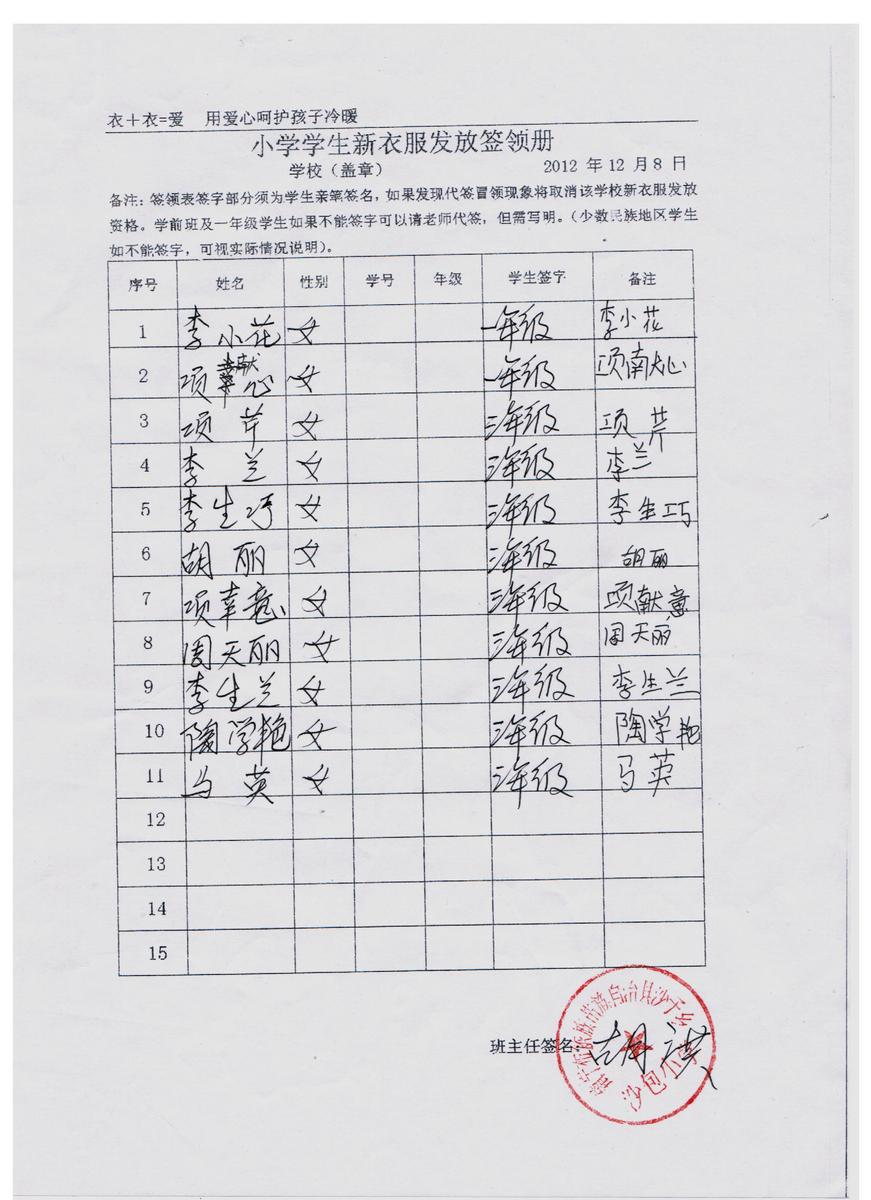 衣＋衣=爱 用爱心呵护孩子冷暖
小学学生新衣服发放签领册
学校（盖章） 2012 年 12 月 8 日
备注：签领表签字部分须为学生亲笔签名，如果发现代签冒领现象将取消该学校新衣服发放
资格。学前班及一年级学生如果不能签字可以请老师代签，但需写明。（少数民族地区学生
如不能签字，可视实际情况说明）。
序号 姓名 性别 学号 年级 学生签字 备注
1 李小花 女 一年级 李小花
2 项献心 女 一年级
3 项芹 女 三年级 项芹
4 李兰 女 三年级 李兰
5 李生巧 女 三年级 李生巧
6 胡丽 女 三年级 胡丽
7 女 三年级 项献意
8 周天丽 女 三年级 周天丽
9 李生兰 女 三年级 李生兰
10 陶学艳 女 三年级 陶学艳
11 马英 女 三年级 马英
12
13
14
15
班主任签名： 胡祺
镇宁布依族苗族自治县沙子乡
沙包小学